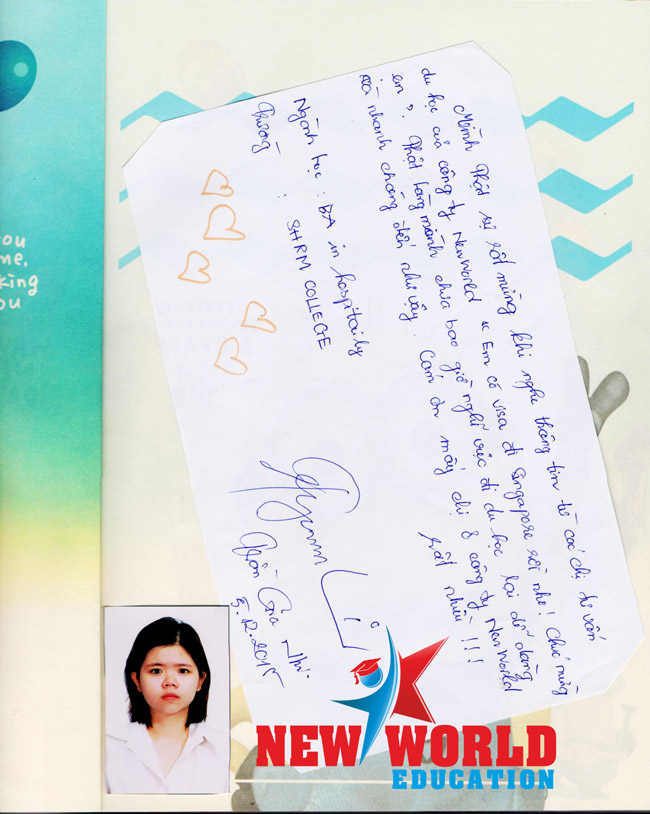 Mình thật sự rất mừng khi nghe thông tin từ các chị tư vấn
du học của công ty NewWorld “ Em có visa đi Singapore rồi nhé! Chúc mừng
em ”. Thật lòng mình chưa bao giờ nghĩ việc đi du học lại dễ dàng
và nhanh chóng đến như vậy. Cám ơn mấy chị & công ty NewWorld
rất nhiều !!!
Ngành học : BA in hospitaily
Trường : SHRM COLLEGE
Gia Nhi
5.12.2015
ou
me,
king
ou
NEW WORLD
EDUCATION